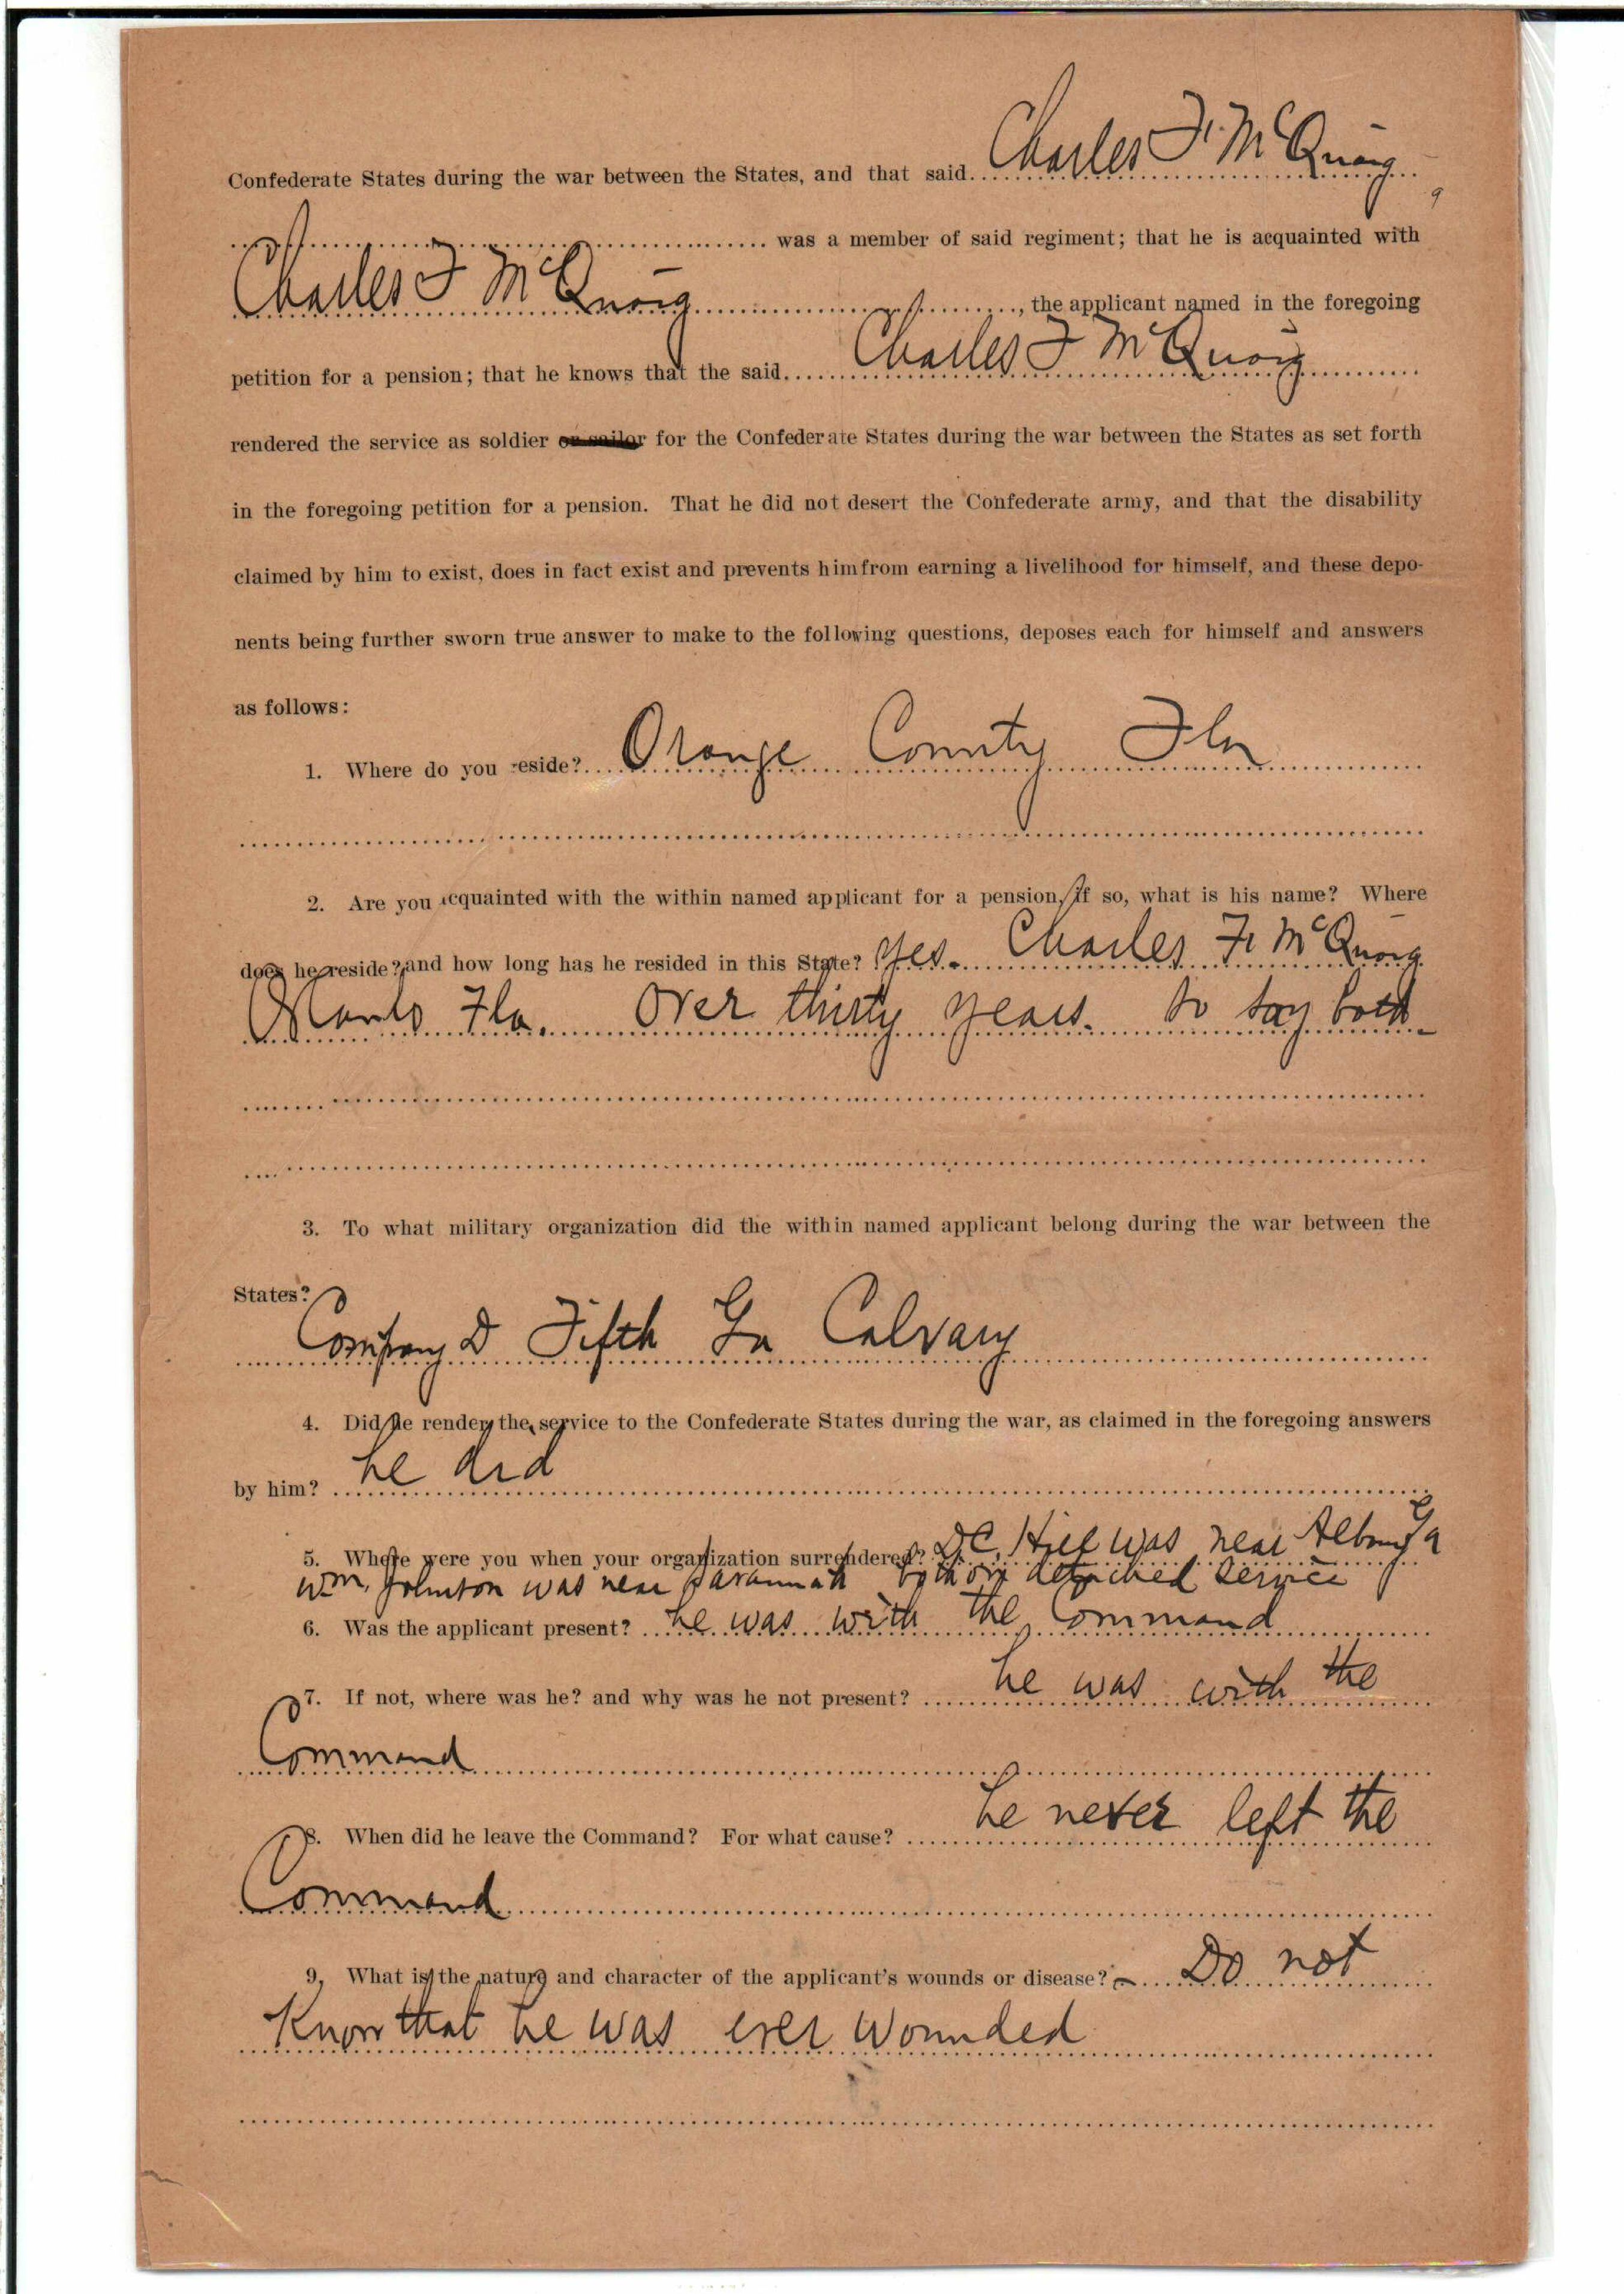 Confederate States during the war between the States, and that said Charles F. McQuaig
was a member of said regiment; that he is acquainted with
Charles F McQuaig, the applicant named in the foregoing
petition for a pension; that he knows that the said Charles F McQuaig
rendered the service as soldier or sailor for the Confederate States during the war between the States as set forth
in the foregoing petition for a pension. That he did not desert the Confederate army, and that the disability
claimed by him to exist, does in fact exist and prevents him from earning a livelihood for himself, and these depo-
nents being further sworn true answer to make to the following questions, deposes each for himself and answers
as follows:
1. Where do you reside? Orange County Fla
2. Are you acquainted with the within named applicant for a pension, if so, what is his name? Where
does he reside? and how long has he resided in this State? Yes. Charles F. McQuaig
Orlando Fla. Over thirty years. so say both
3. To what military organization did the within named applicant belong during the war between the
States?
Company D Fifth Ga Calvary
4. Did he render the service to the Confederate States during the war, as claimed in the foregoing answers
by him? he did
5. Where were you when your organization surrendered? D C, Hill was near Albany Ga
Wm. Johnston was near Savannah both on detached service
6. Was the applicant present? he was with the Command
7. If not, where was he? and why was he not present? he was with the
Command
8. When did he leave the Command? For what cause? he never left the
Command
9. What is the nature and character of the applicant's wounds or disease? Do not
Know that he was ever wounded